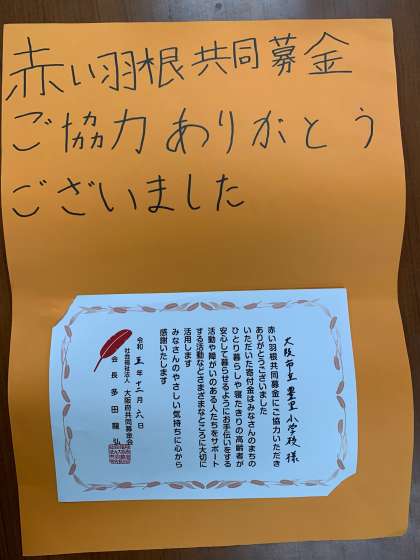 赤い羽根共同募金
ご協力ありがとう
ございました
大阪市立豊里小学校様
赤い羽根共同募金にご協力いただき
ありがとうございました
いただいた寄付金はみなさんのまちの
ひとり暮らしや寝たきりの高齢者が
安心して暮らせるようにお手伝いをする
活動や障がいのある人たちをサポート
する活動などさまざまなところに大切に
活用します
みなさんのやさしい気持ちに心から
感謝いたします
令和五年十二月六日
社会福祉法人 大阪府共同募金会
会長 多田龍弘